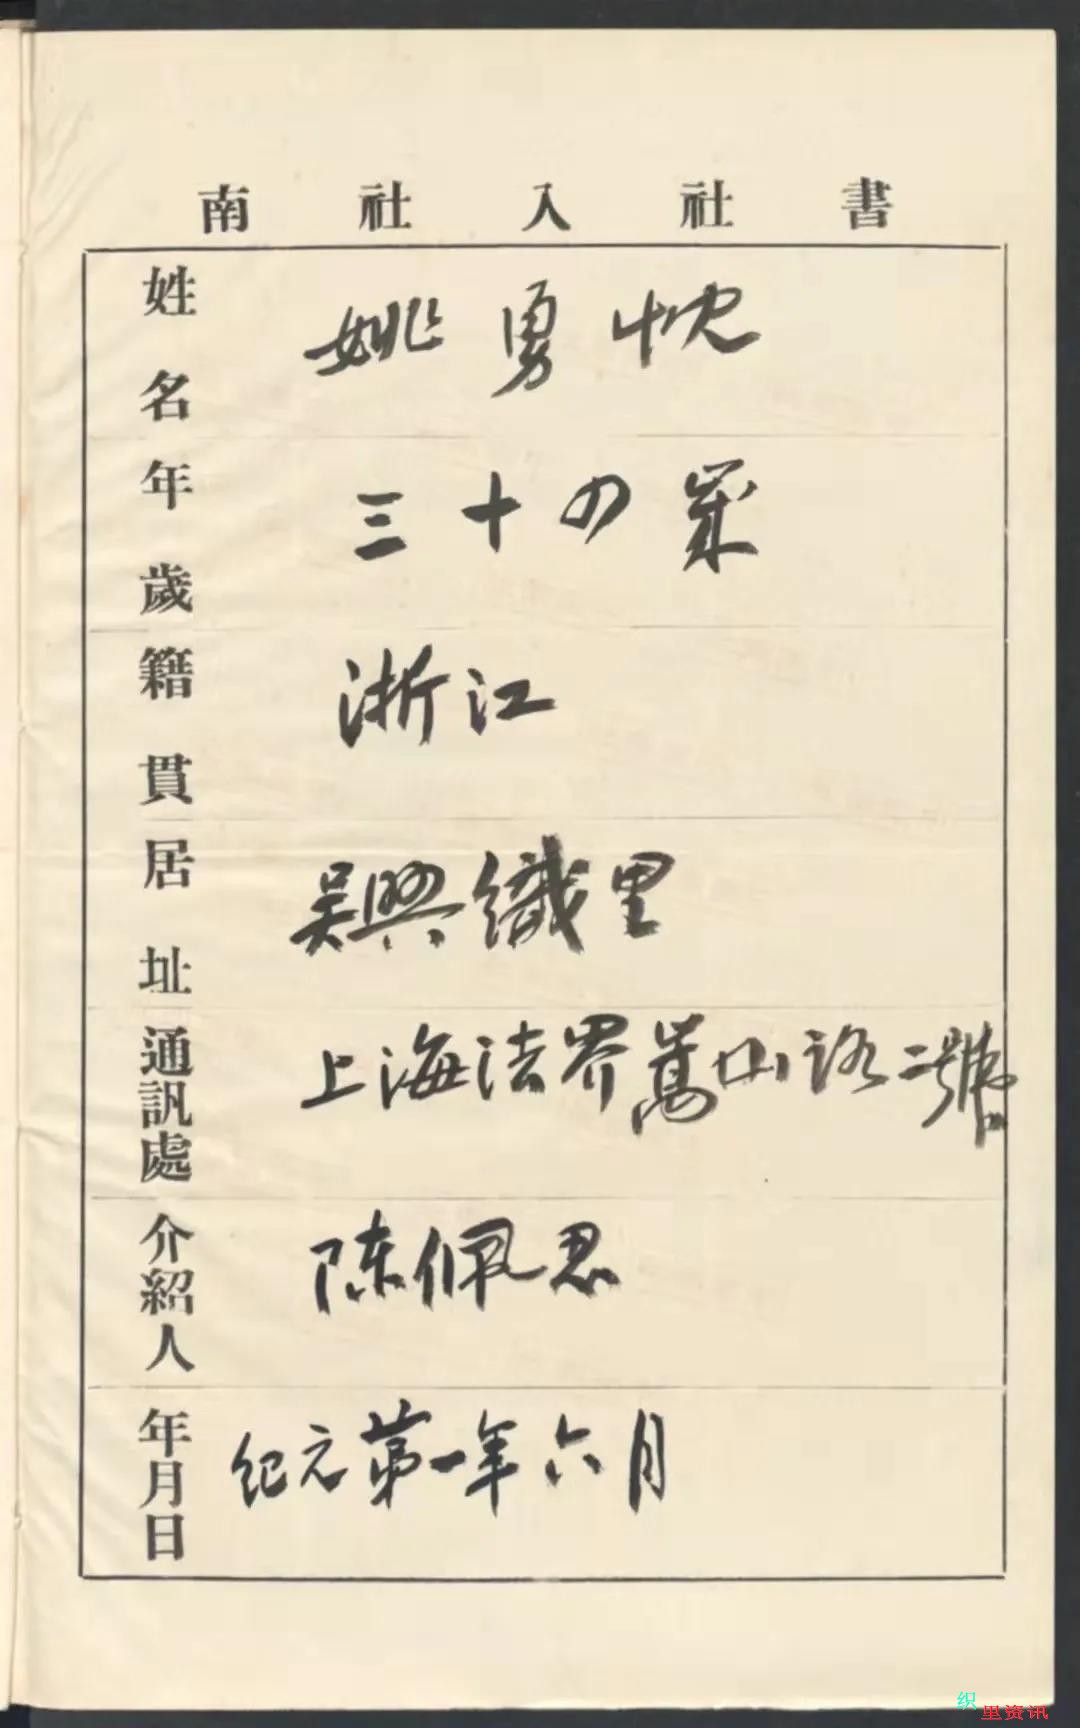 南社入社書
姓名 姚勇忱
年歲 三十四歲
籍貫 浙江
居址 吳興織里
通訊處 上海法界嵩山路二號
介紹人 陈佩忍
年月日 紀元第一年六月
织里资讯